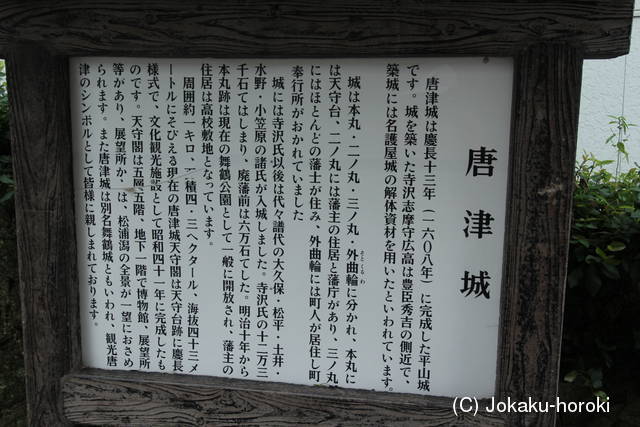 唐津城
唐津城は慶長十三年（一六〇八年）に完成した平山城
です。城を築いた寺沢志摩守広高は豊臣秀吉の側近で、
築城には名護屋城の解体資材を用いたといわれています。
城は本丸・二ノ丸・三ノ丸・外曲輪に分かれ、本丸に
は天守台、二ノ丸には藩主の住居と藩庁があり、三ノ丸
にはほとんどの藩士が住み、外曲輪には町人が居住し町
奉行所がおかれていました
城には寺沢氏以後は代々譜代の大久保・松平・土井・
水野・小笠原の諸氏が入城しました。寺沢氏の十二万三
千石ではじまり、廃藩前は六万石でした。明治十年から
本丸跡は現在の舞鶴公園として一般に開放され、藩主の
住居は高校敷地となっています。
周囲約一キロ、 積四・三ヘクタール、海抜四十三メ
ートルにそびえる現在の唐津城天守閣は天守台跡に慶長
様式で、文化観光施設として昭和四十一年に完成したも
のです。天守閣は五層五階、地下一階で博物館、展望所
等があり、展望所か は、松浦潟の全景が一望におさめ
られます。また唐津城は別名舞鶴城ともいわれ、観光唐
津のシンボルとして皆様に親しまれております。
(C) Jokaku-horoki